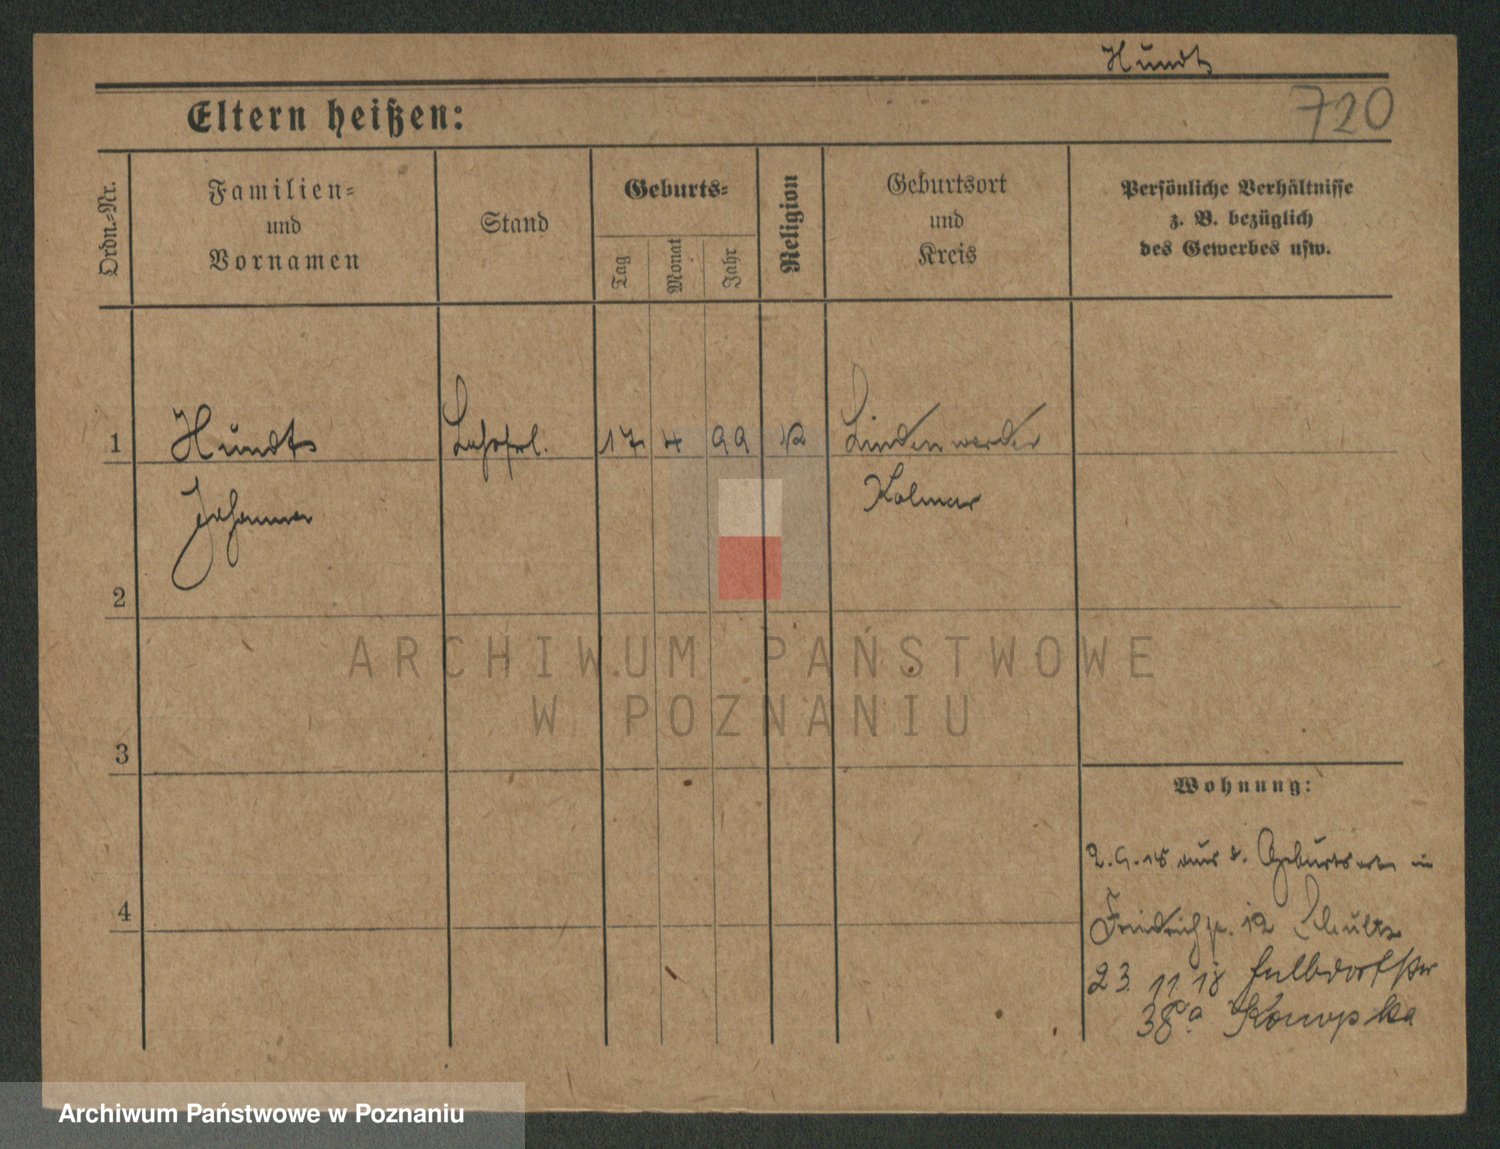 Hundt
Eltern heißen:
720
Ordn.-Nr.
Familien-
und
Vornamen
Stand
Geburts-
Tag
Monat
Jahr
Religion
Geburtsort
und
Kreis
Persönliche Verhältnisse
z. B. bezüglich
des Gewerbes usw.
1 Hundt 17 4 99 Lindenwerder
Kolmar
2
3
4
ARCHIWUM PAŃSTWOWE
W POZNANIU
Wohnung:
2.9.18 aus d. Geburtsort in
12 Schultz
23. 11 18
38a Konopka
Archiwum Państwowe w Poznaniu